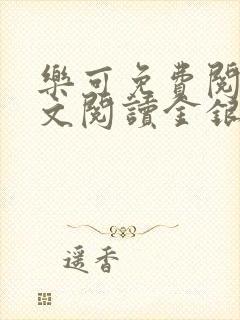 樂可免費閱
文閱讀金銀
遥香